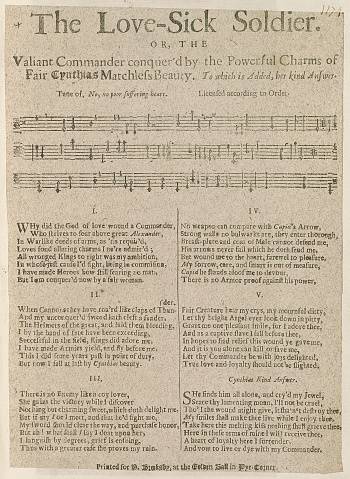 The Love-Sick Soldier.
OR, THE
Valiant Commander conquer'd by the Powerful Charms of
Fair Cynthias Matchless Beauty. To which is Added, her kind Answer.
Tune of, No, no poor suffering heart. Licensed according to Order.
I.
WHy did the God of love wound a Commander,
Who strives to soar above great Alexander,
In Warlike deeds of arms, as 'tis requir'd,
Loves fond alluring charms I ne'er admir'd;
All wronged Kings to right was my ambition,
I have made Heroes bow still fearing no man,
But I am conquer'd now by a fair woman.
II.
When Cannons they have roar'd like claps of Thun-
der,
And my unconquer'd sword hath cleft asunder,
The Helmets of the great, and laid them bleeding,
I by the hand of fate have been exceeding,
Successful in the field, Kings did adore me,
I have made Armies yield, and fly before me.
This I did some years past in point of duty,
But now I fall at last by Cynthias beauty.
III.
There is no Enemy like a coy lover,
She gains the victory whilst I discover
Nothing but charming sweets, which doth delight me,
But if my Foe I meet, and that he'd fight me,
My sword should clear the way, and purchase honor,
But ah! what shall I say I doat upon her,
I languish by degrees, grief is ensuing,
Thus with a greater ease she proves my ruin.
IV.
No weapon can compare with Cupid's Arrow,
Strong walls no bulwarks are, they enter thorough,
Breast-plate and coat of Male cannot defend me,
His arrows never fail which he doth send me,
But wound me to the heart, farewel to pleasure,
My sorrow, care, and smart is out of measure,
Cupid he sheds aloof me to devour,
There is no Armor proof against his power,
V.
Fair Creature hear my crys, my mournful diety,
Let thy bright Angel eyes look down in pity,
Grant me one pleasant smile, for I adore thee,
And as a captive have I fell before thee,
In hopes to find relief this wound ye gave me,
And it is you alone can kill or save me,
Let thy Commander be with joys delighted,
True love and loyalty should not be slighted.
Cynthias Kind Answer.
SHe finds him all alone, and cry'd my Jewel,
Spare thy lamenting moan, I'll not be cruel,
My smiles shall make thee live while I enjoy thee,
Take here this melting kiss nothing shall grieve thee,
Here in these arms of mine I will receive thee,
A heart of loyalty here I surrender,
And vow to live or dye with my Commander.
Printed for P. Brooksby, at the Golden Ball in Pye-Corner.